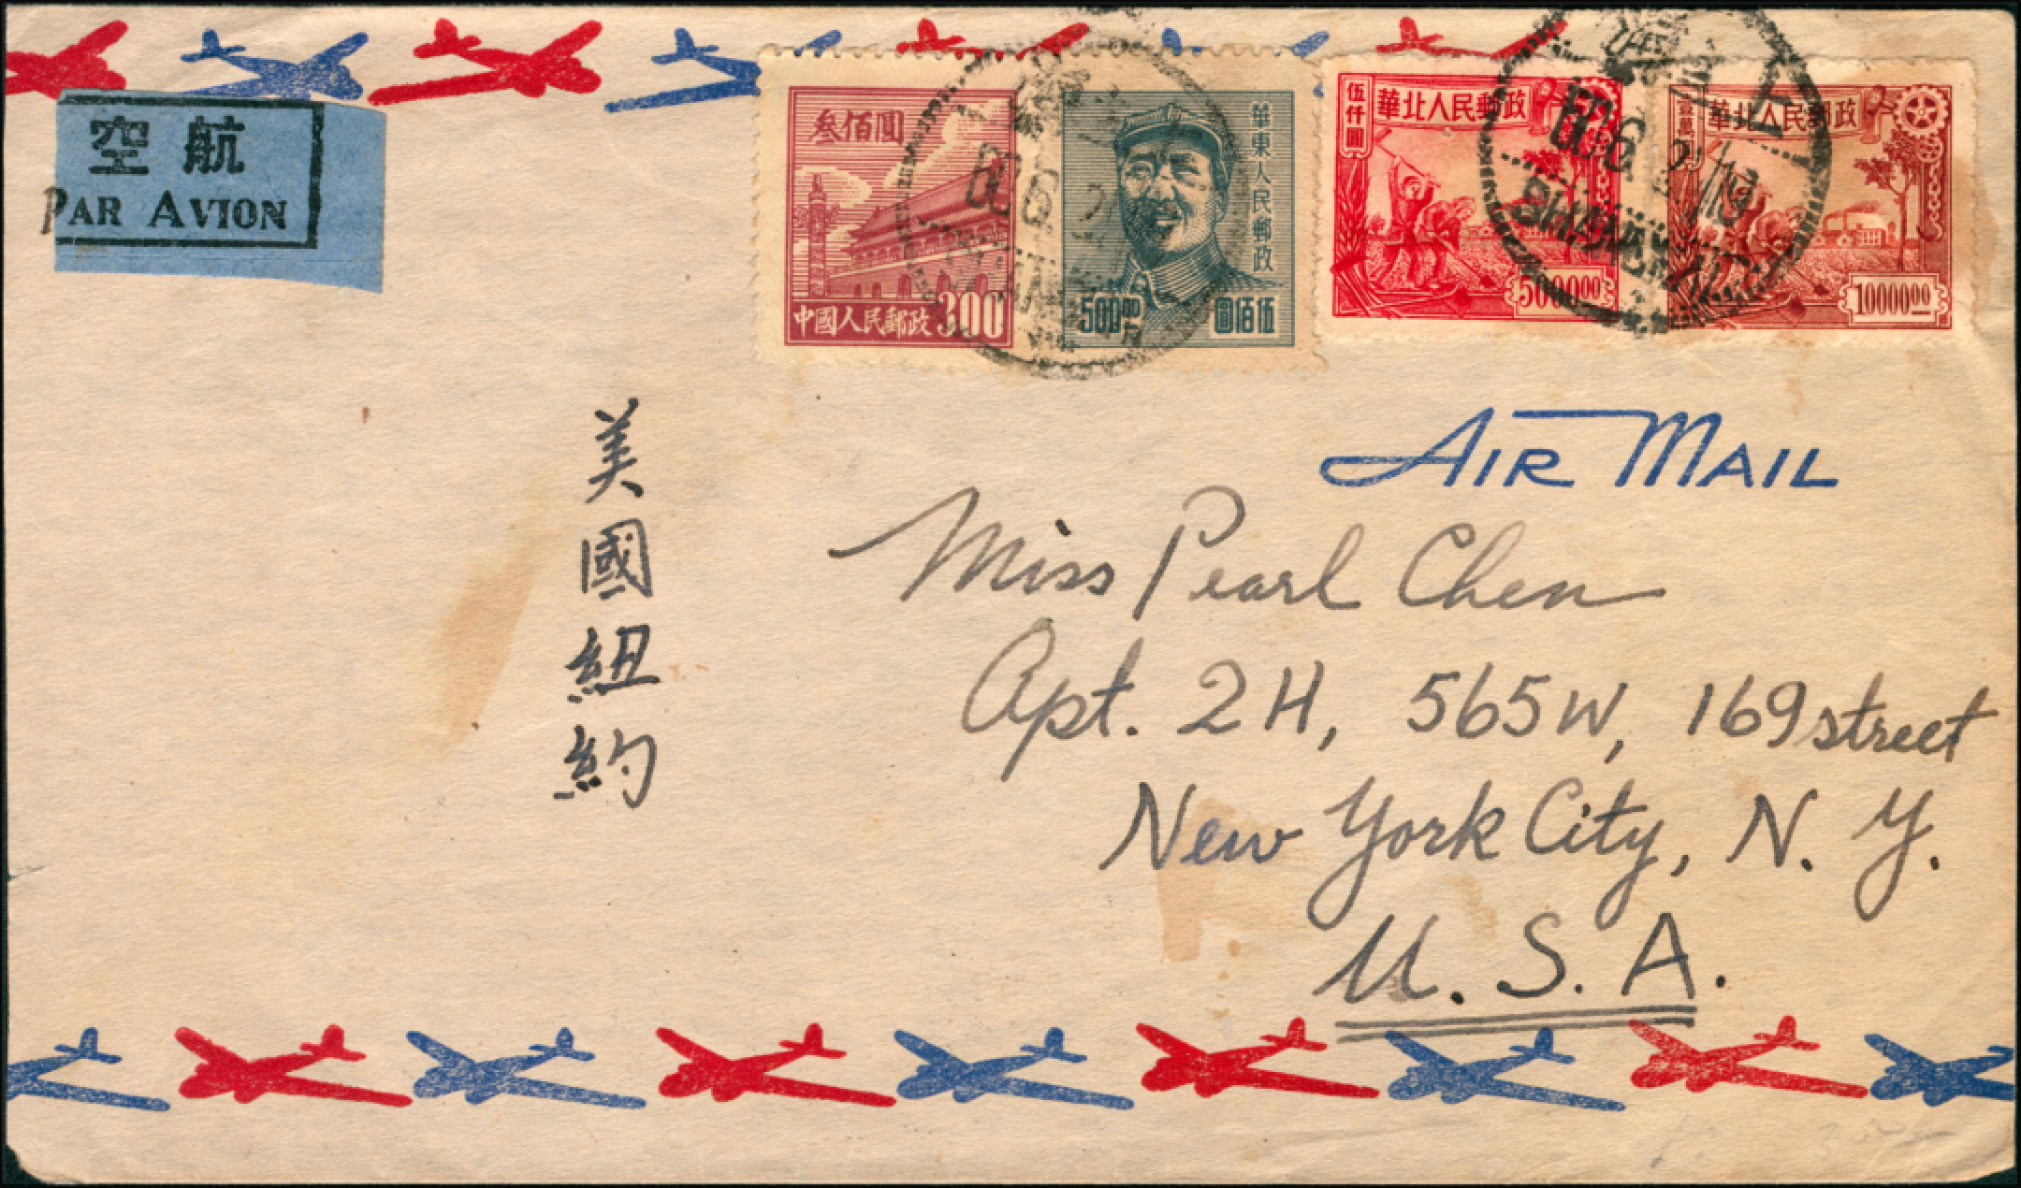 空航
PAR AVION
叁佰圓
中國人民郵政 300
華東人民郵政
500.00
圓佰伍
伍仟圓
華北人民郵政
5000.00
壹萬
華北人民郵政
10000.00
SHANGHAI
AIR MAIL
美國紐約
Miss Pearl Chen
Apt. 2H, 565W, 169 street
New York City, N. Y.
U. S. A.